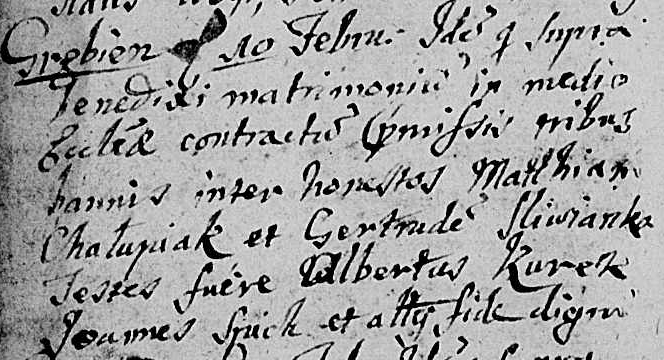 Grębien 10 Febru: Idē q supra
benedixi matrimoniū in medio
Eccl̄æ contractū p̄missis tribus
bannis inter honestos Matthian
Chałupiak et Gertrudē Sliwianka
Testes fuēre Albertus Kurek
Joannes Spich et alij fide digni